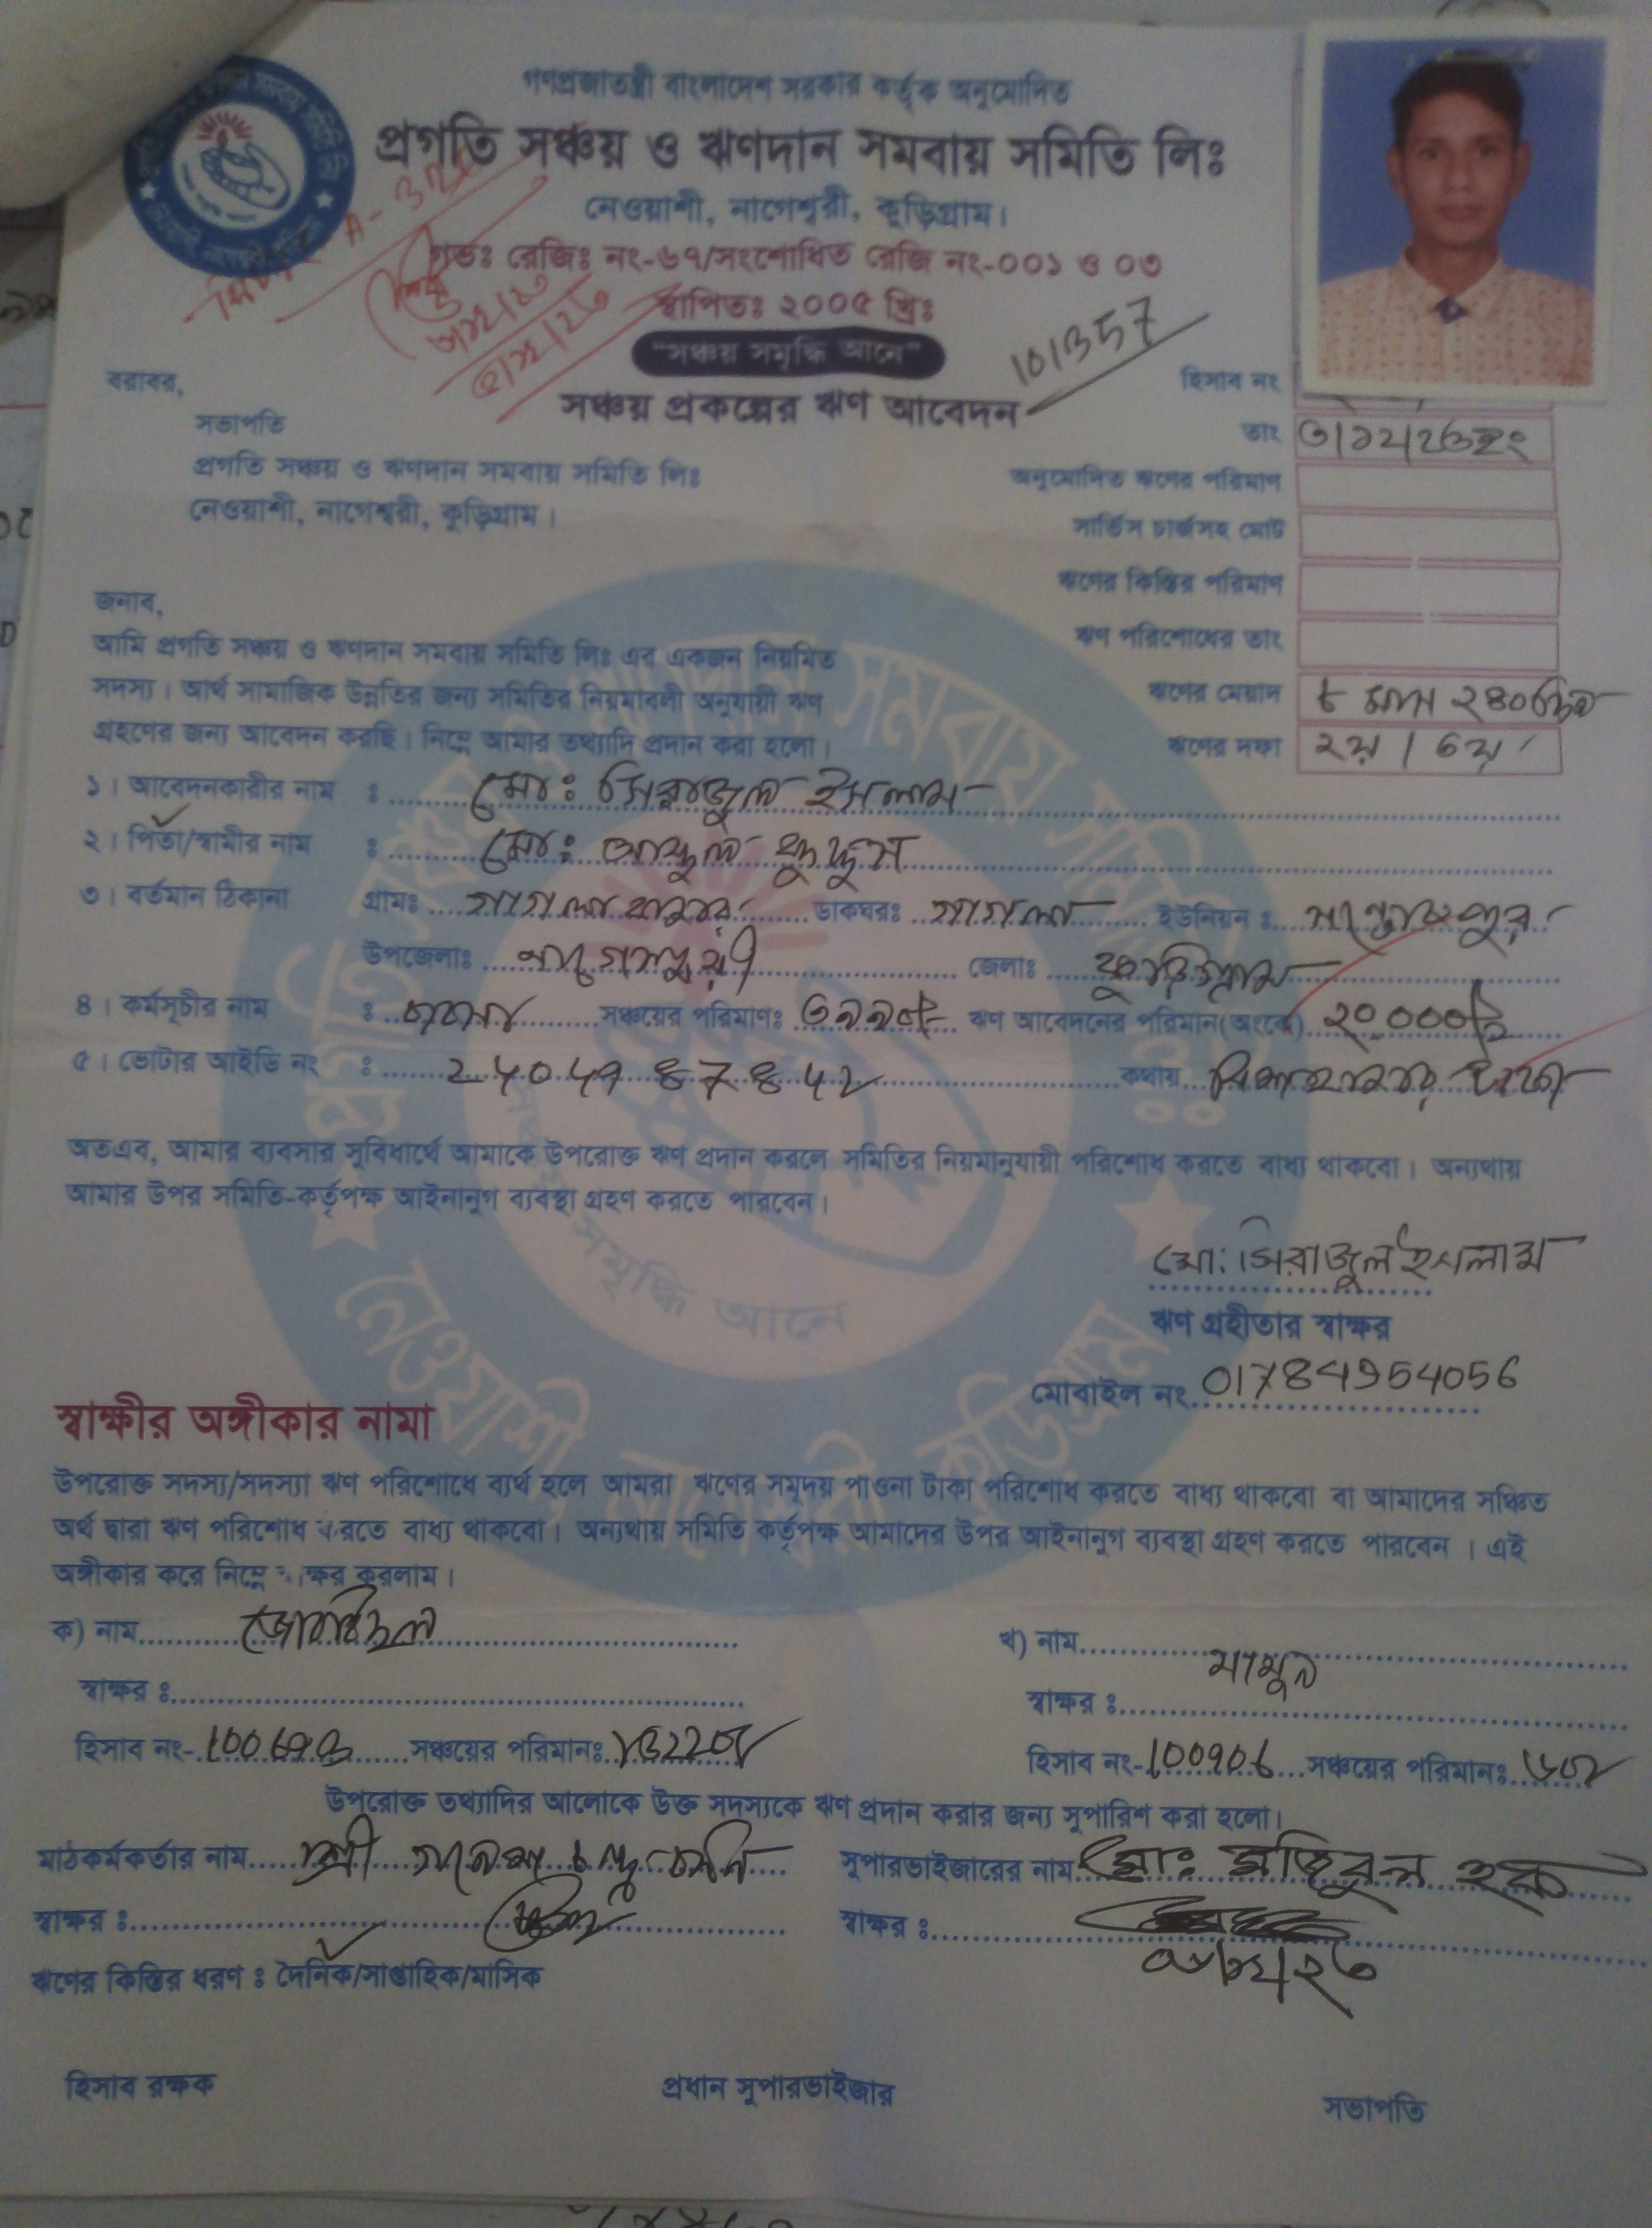 গণপ্রজাতন্ত্রী বাংলাদেশ সরকার কর্তৃক অনুমোদিত
প্রগতি সঞ্চয় ও ঋণদান সমবায় সমিতি লিঃ
নেওয়াশী, নাগেশ্বরী, কুড়িগ্রাম।
গভঃ রেজিঃ নং-৬৭/সংশোধিত রেজি নং-০০১ ও ০৩
স্থাপিতঃ ২০০৫ খ্রিঃ
"সঞ্চয় সমৃদ্ধি আনে"
সঞ্চয় প্রকল্পের ঋণ আবেদন
101357
হিসাব নং
বরাবর,
সভাপতি
প্রগতি সঞ্চয় ও ঋণদান সমবায় সমিতি লিঃ
নেওয়াশী, নাগেশ্বরী, কুড়িগ্রাম।
তাং ৩/১২/২৩ইং
অনুমোদিত ঋণের পরিমাণ
সার্ভিস চার্জসহ মোট
ঋণের কিস্তির পরিমাণ
ঋণ পরিশোধের তাং
ঋণের মেয়াদ ৮ মাস ২৪০দিন
ঋণের দফা ২য় / ৩য়
জনাব,
আমি প্রগতি সঞ্চয় ও ঋণদান সমবায় সমিতি লিঃ এর একজন নিয়মিত
সদস্য। আর্থ সামাজিক উন্নতির জন্য সমিতির নিয়মাবলী অনুযায়ী ঋণ
গ্রহণের জন্য আবেদন করছি। নিম্নে আমার তথ্যাদি প্রদান করা হলো।
১। আবেদনকারীর নাম : মোঃ সিরাজুল ইসলাম
২। পিতা/স্বামীর নাম : মোঃ আব্দুল কুদ্দুস
৩। বর্তমান ঠিকানা গ্রামঃ গাগলা বাজার ডাকঘরঃ গাগলা ইউনিয়ন : সন্তোষপুর
উপজেলাঃ নাগেশ্বরী জেলাঃ কুড়িগ্রাম
৪। কর্মসূচীর নাম : সঞ্চয়ের পরিমাণঃ ৩৯৯০/- ঋণ আবেদনের পরিমান(অংকে) ২০০০০/-
৫। ভোটার আইডি নং : কথায় বিশ হাজার টাকা
অতএব, আমার ব্যবসার সুবিধার্থে আমাকে উপরোক্ত ঋণ প্রদান করলে সমিতির নিয়মানুযায়ী পরিশোধ করতে বাধ্য থাকবো। অন্যথায়
আমার উপর সমিতি-কর্তৃপক্ষ আইনানুগ ব্যবস্থা গ্রহণ করতে পারবেন।
মো: সিরাজুল ইসলাম
ঋণ গ্রহীতার স্বাক্ষর
মোবাইল নং 01784954056
স্বাক্ষীর অঙ্গীকার নামা
উপরোক্ত সদস্য/সদস্যা ঋণ পরিশোধে ব্যর্থ হলে আমরা ঋণের সমূদয় পাওনা টাকা পরিশোধ করতে বাধ্য থাকবো বা আমাদের সঞ্চিত
অর্থ দ্বারা ঋণ পরিশোধ করতে বাধ্য থাকবো। অন্যথায় সমিতি কর্তৃপক্ষ আমাদের উপর আইনানুগ ব্যবস্থা গ্রহণ করতে পারবেন। এই
অঙ্গীকার করে নিম্নে স্বাক্ষর করলাম।
ক) নাম
খ) নাম মামুন
স্বাক্ষর :
স্বাক্ষর :
হিসাব নং- সঞ্চয়ের পরিমানঃ
হিসাব নং- সঞ্চয়ের পরিমানঃ
উপরোক্ত তথ্যাদির আলোকে উক্ত সদস্যকে ঋণ প্রদান করার জন্য সুপারিশ করা হলো।
মাঠকর্মকর্তার নাম শ্রী গনেশ চন্দ্র
সুপারভাইজারের নাম মোঃ মজিবুল হক
স্বাক্ষর :
স্বাক্ষর :
ঋণের কিস্তির ধরণ : দৈনিক/সাপ্তাহিক/মাসিক
হিসাব রক্ষক
প্রধান সুপারভাইজার
সভাপতি